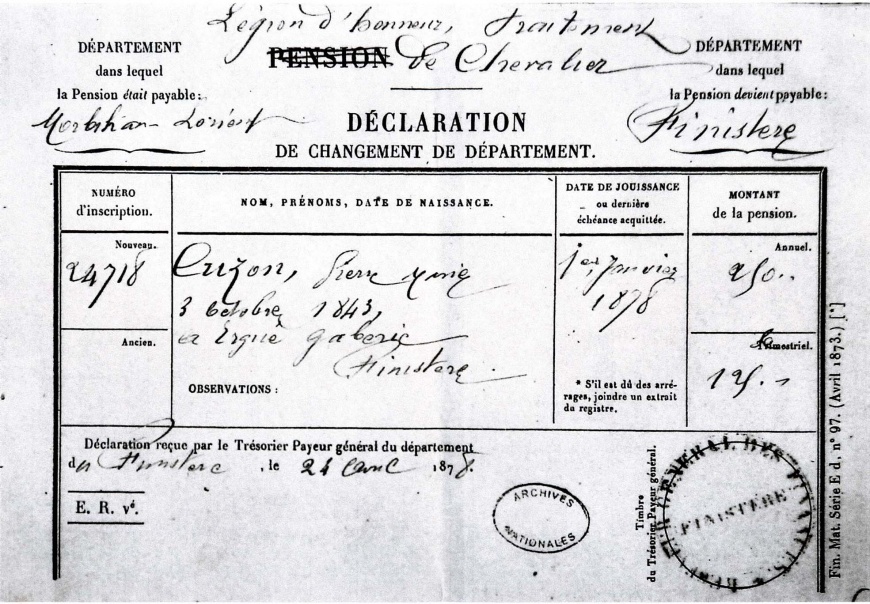 Légion d'honneur, Traitement
PENSION de Chevalier
DÉPARTEMENT
dans lequel
la Pension était payable:
Morbihan Lorient
DÉPARTEMENT
dans lequel
la Pension devient payable:
Finistere
DÉCLARATION
DE CHANGEMENT DE DÉPARTEMENT.
NUMÉRO
d'inscription.
NOM, PRÉNOMS, DATE DE NAISSANCE.
DATE DE JOUISSANCE
ou dernière
échéance acquittée.
MONTANT
de la pension.
Nouveau.
24718
Ancien.
Cuzon, Pierre
3 octobre 1843,
a Ergué gaberic
Finistere
OBSERVATIONS :
1er Janvier
1878
* S'il est dû des arré-
rages, joindre un extrait
du registre.
Annuel.
250..
trimestriel.
125..
Déclaration reçue par le Trésorier Payeur général du département
du Finistere, le 24 avril 1878.
E. R. vé.
ARCHIVES
NATIONALES
Timbre
du Trésorier Payeur général.
GÉNÉRAL DES FINANCES
FINISTÈRE
Fin. Mat. Série E d, n° 97. (Avril 1873.) [*]